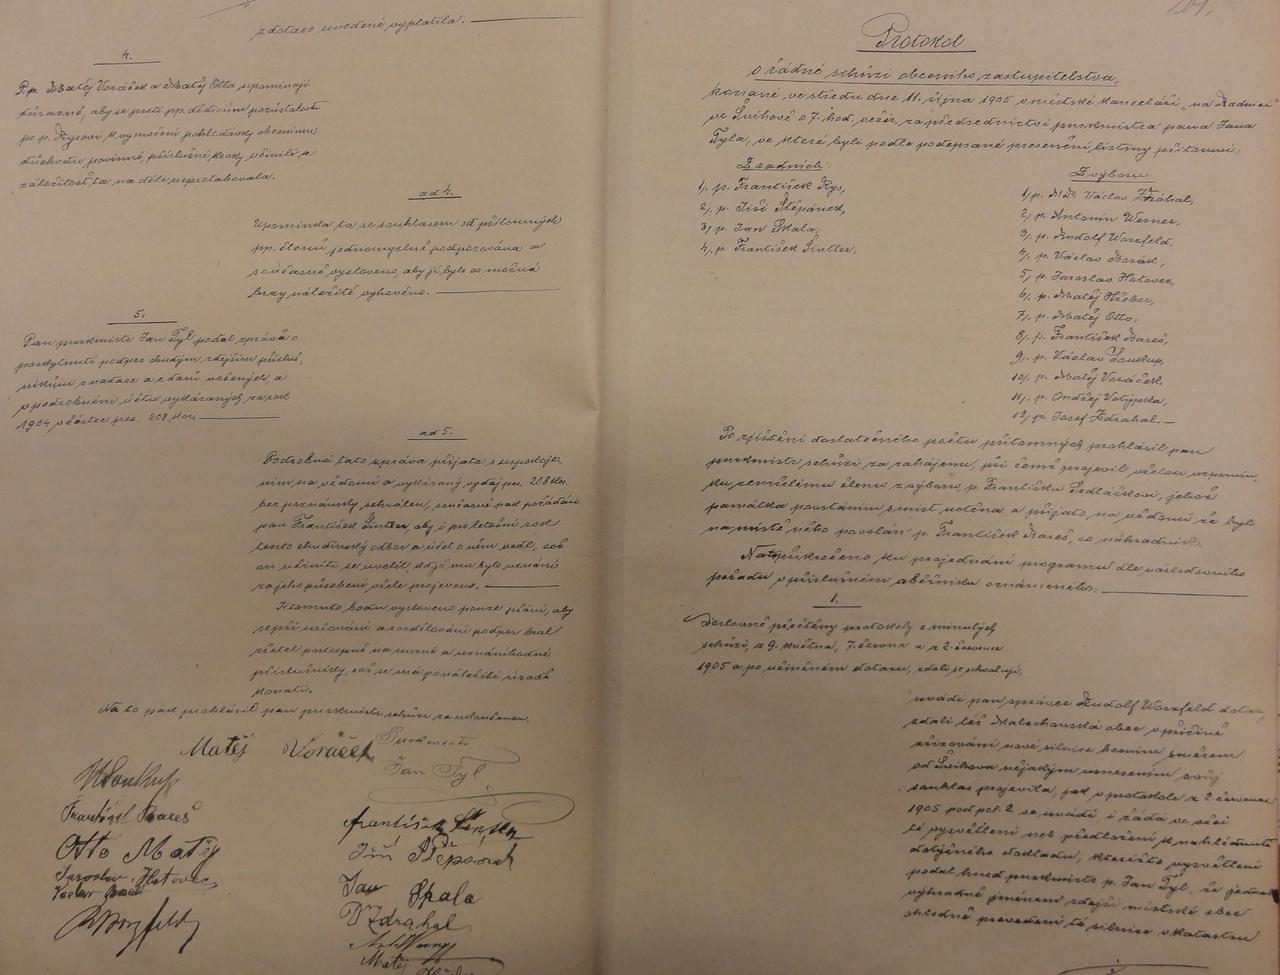 z dotace uvedené vyplatila.
4.
P. p. Matěj Voráček a Matěj Otto upomínají
důrazně, aby se proti pp. dědicům pozůstalosti
po p. Rysovi k vymožení pohledávky obecnímu
důchodu povinné, příslušné kroky učinily a
záležitost ta na dále neprotahovala.
ad 4.
Upomínka ta se souhlasem od přítomných
pp. členů jednomyslně podporována a
současně vysloveno, aby jí bylo co možná
brzy náležitě vyhověno.
5.
Pan purkmistr Jan Tyl podal zprávu o
poskytnutí podpor chudým zdejším přísluš-
níkům z nadace a z daní určených, a
v podrobném účtu vykázaných za rok
1904 v částce per. 208 Kor.
ad 5.
Podrobná tato zpráva přijata s uspokoje-
ním na vědomí a vykázaný výdaj per. 208 Kor.
bez poznámky schválen, současně pak požádán
pan František Šintler, aby i pro letošní rok
tento chudinský odbor a účet o něm vedl, což
on učiniti se uvolil, když mu bylo uznání
za jeho působení vřele projeveno.
K tomuto bodu vysloveno pouze přání, aby
se při určování a rozdělování podpor bral
zřetel postupně na nuzné a uznáníhodné
příslušníky, což se má po náležité úvaze
konati.
Na to pak prohlásil pan purkmistr schůzi za ukončenou.
Matěj Voráček
Purkmistr
Jan Tyl
VSoukup
František Bareš
Otto Matěj
Jaroslav Hotovec
Václav
RWorzfeld
František Šintler
Jiří Štěpánek
Jan Skala
Dr Zdráhal
Ant. Werner
Matěj
201.
Protokol
o řádné schůzi obecního zastupitelstva,
konané, ve středu dne 11. října 1905 v městské kanceláři „na Radnici“
ve Švihově o 7. hod. večer, za předsednictví purkmistra pana Jana
Tyla, ve které byli podle podepsané presenční listiny přítomni:
Z radních:
1/. p. František Rys,
2/. p. Jiří Štěpánek,
3/. p. Jan Skala,
4/. p. František Šintler.
Z výboru:
1/. p. MDr Václav Zdráhal,
2/. p. Antonín Werner,
3/. p. Rudolf Worzfeld,
4/. p. Václav Bosák,
5/. p. Jaroslav Hotovec,
6/. p. Matěj Hřebec,
7/. p. Matěj Otto,
8/. p. František Bareš,
9/. p. Václav Soukup,
10/. p. Matěj Voráček,
11/. p. Ondřej Votýpka,
12/. p. Josef Zdráhal.
Po zjištění dostatečného počtu přítomných prohlásil pan
purkmistr schůzi za zahájenu, při čemž projevil vřelou vzpomín-
ku zemřelému členu z výboru, p. Františku Sedláčkovi, jehož
památka povstáním s míst uctěna a přijato na vědomí že byl
na místě něho povolán p. František Bareš, co náhradník.
Nato přikročeno ku projednání programu dle následovního
pořadu v příslušném oběžníku oznámeného.
1.
Doslovně přečteny protokoly z minulých
schůzí, z 9. května, 7. června a z 2. července
1905 a po učiněném dotazu, zdali se schvalují,
uvádí pan správce Rudolf Worzfeld dotaz,
zdali též Malechovská obec v příčině
zřizování nové silnice bočním směrem
od Švihova nějakým usnesením svůj
souhlas projevila, jak v protokole z 2. července
1905 pod pol. 2 se uvádí, i žádá ve věci
té vysvětlení neb předložení k nahlédnutí
dotyčného dokladu, kteréžto vysvětlení
podal hned purkmistr p. Jan Tyl, že jednal
výhradně jménem zdejší městské obce
ohledně provedení té silnice v katastru